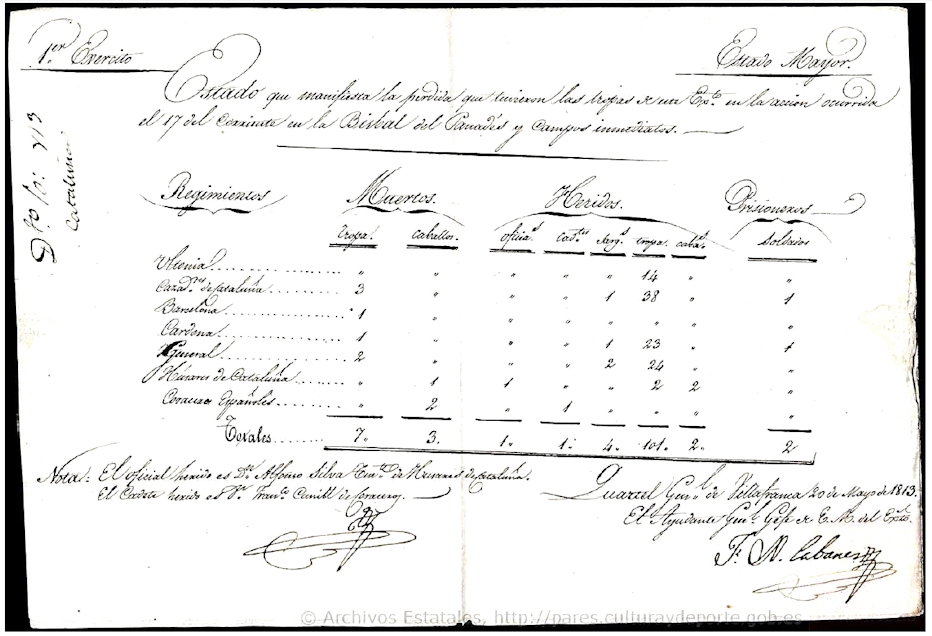 1.er Exercito
Estado Mayor.
Estado que manifiesta la perdida que tuvieron las tropas de este Exto. en la accion ocurrida
el 17 del Corriente en la Bisbal del Panadés y Campos inmediatos.
Cataluña
Regimientos Muertos. Heridos. Prisioneros
tropa. caballos. oficias. cadtes. sargs. tropa. cabas. Soldados
Ultonia " " " " " 14 " "
Cazadres. de Cataluña 3 " " " 1 38 " 1
Barcelona 1 " " " " " " "
Cardona 1 " " " 1 23 " 1
General 2 " " " 2 24 " "
Húsares de Cataluña " 1 1 " " 2 2 "
Coraceros Españoles " 2 " 1 " " " "
Totales 7. 3. 1. 1. 4. 101. 2. 2
Nota: El oficial herido es Dn. Alfonso Silva Tente. de Husares de Cataluña.
El Cadete herido es Dn. Franco. de Coraceros.
Quartel Genl. de Villafranca 20 de Mayo de 1813.
El Ayudante Genl. Gefe de E. M. del Exto.
F. N. Cabanes
© Archivos Estatales, http://pares.culturaydeporte.gob.es